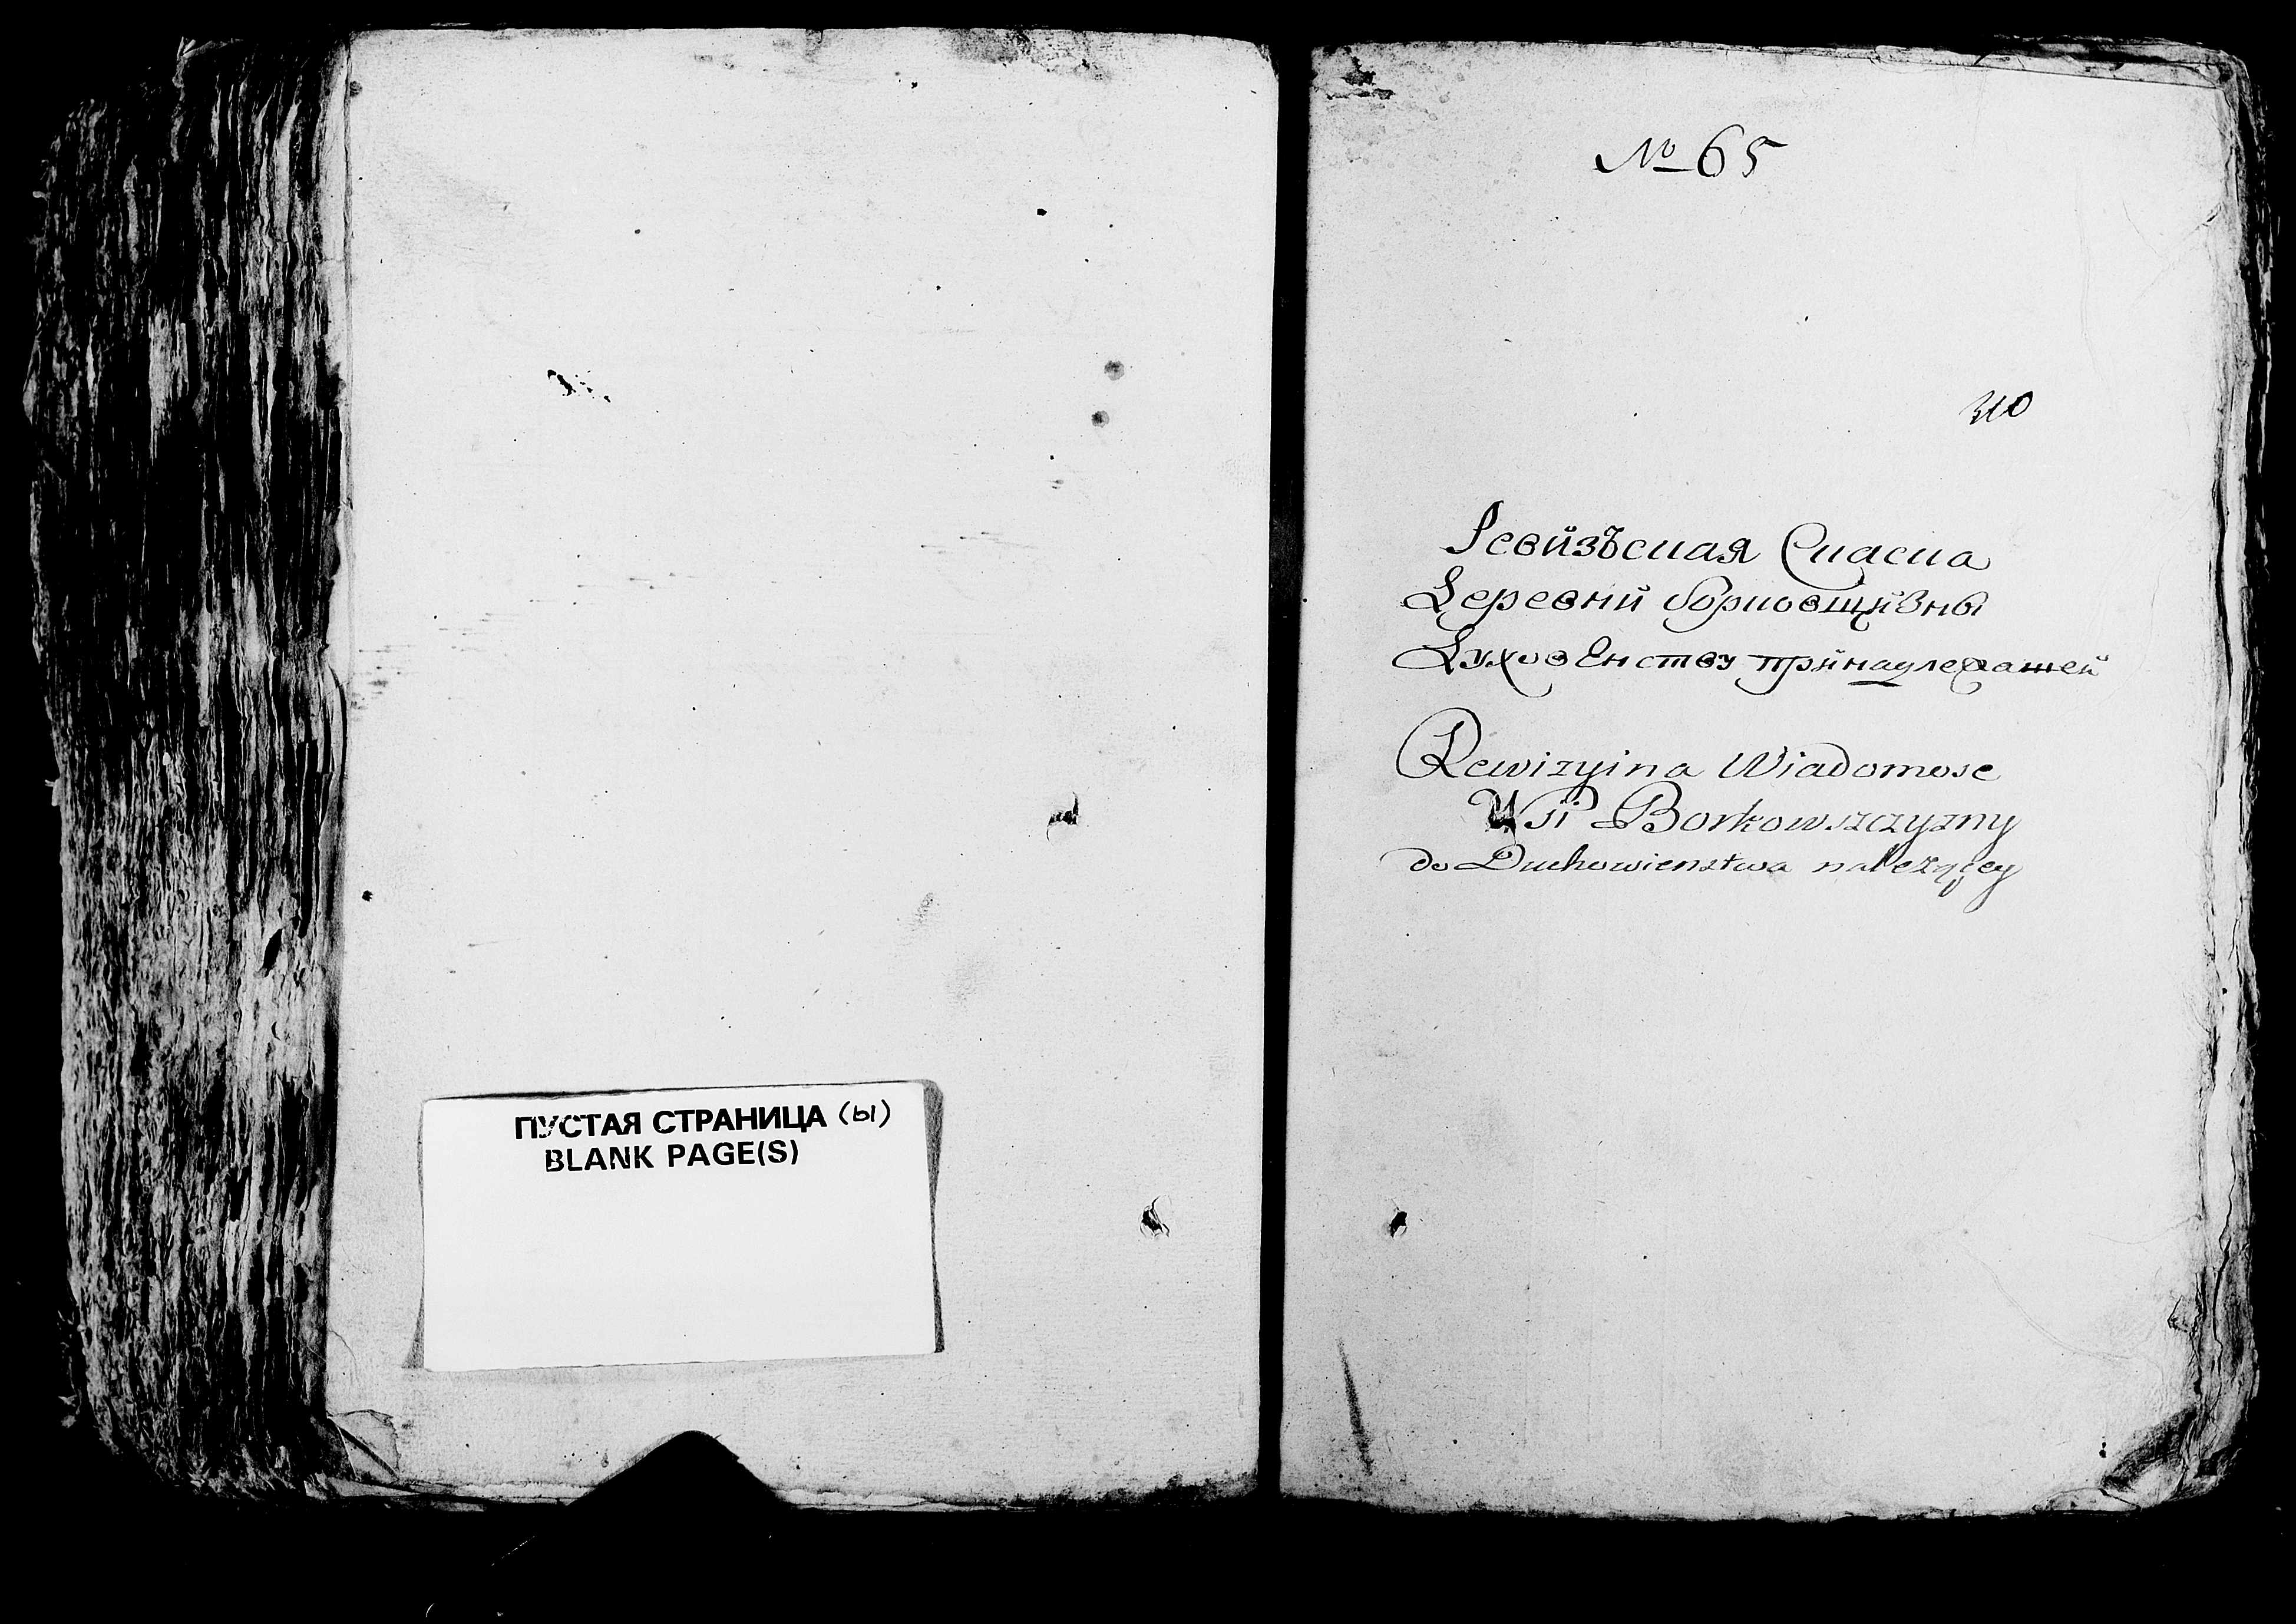 ПУСТАЯ СТРАНИЦА (ы)
BLANK PAGE(S)
№ 65
310
Ревизъская Сказка
Деревни Борковщизны
Духовенству принадлежащей
Rewizyina Wiadomosc
Wsi Borkowszczyzny
do Duchowienstwa należącey